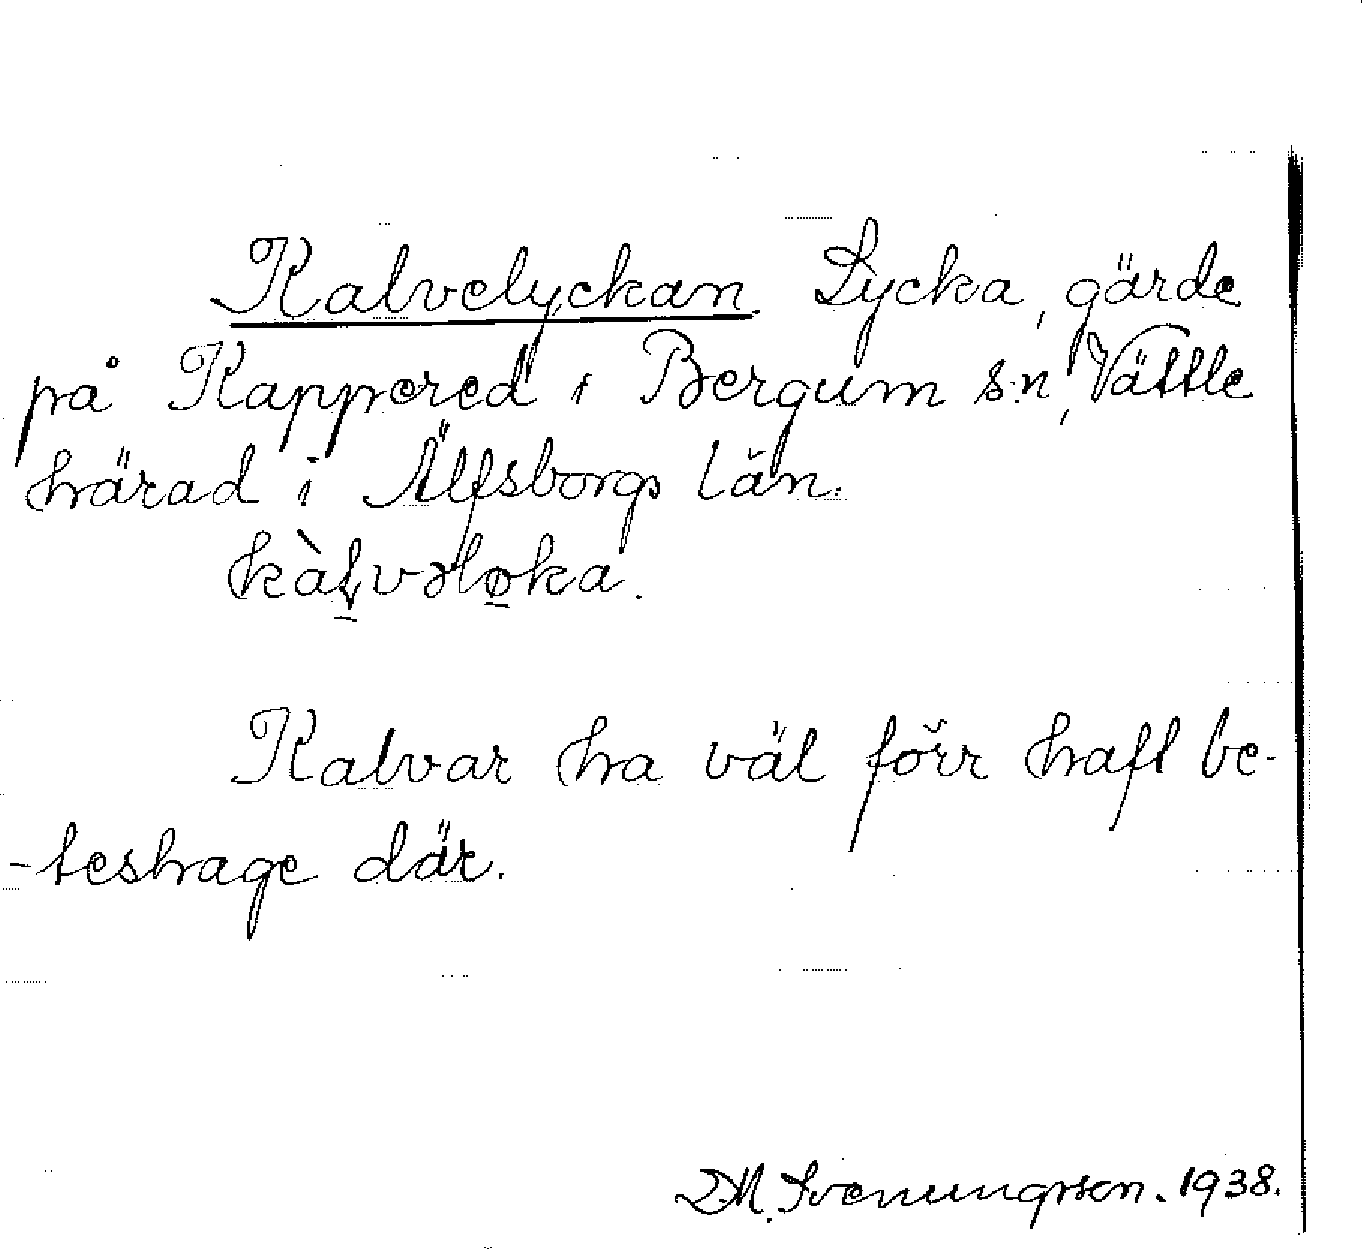 Kalvelyckan. Lycka, gärde
på Kappered i Bergum s:n, Vättle
härad i Älfsborgs län.
kàḷvəlo̱ka.
Kalvar ha väl förr haft be-
-teshage där.
D.M. Svenungsson. 1938.